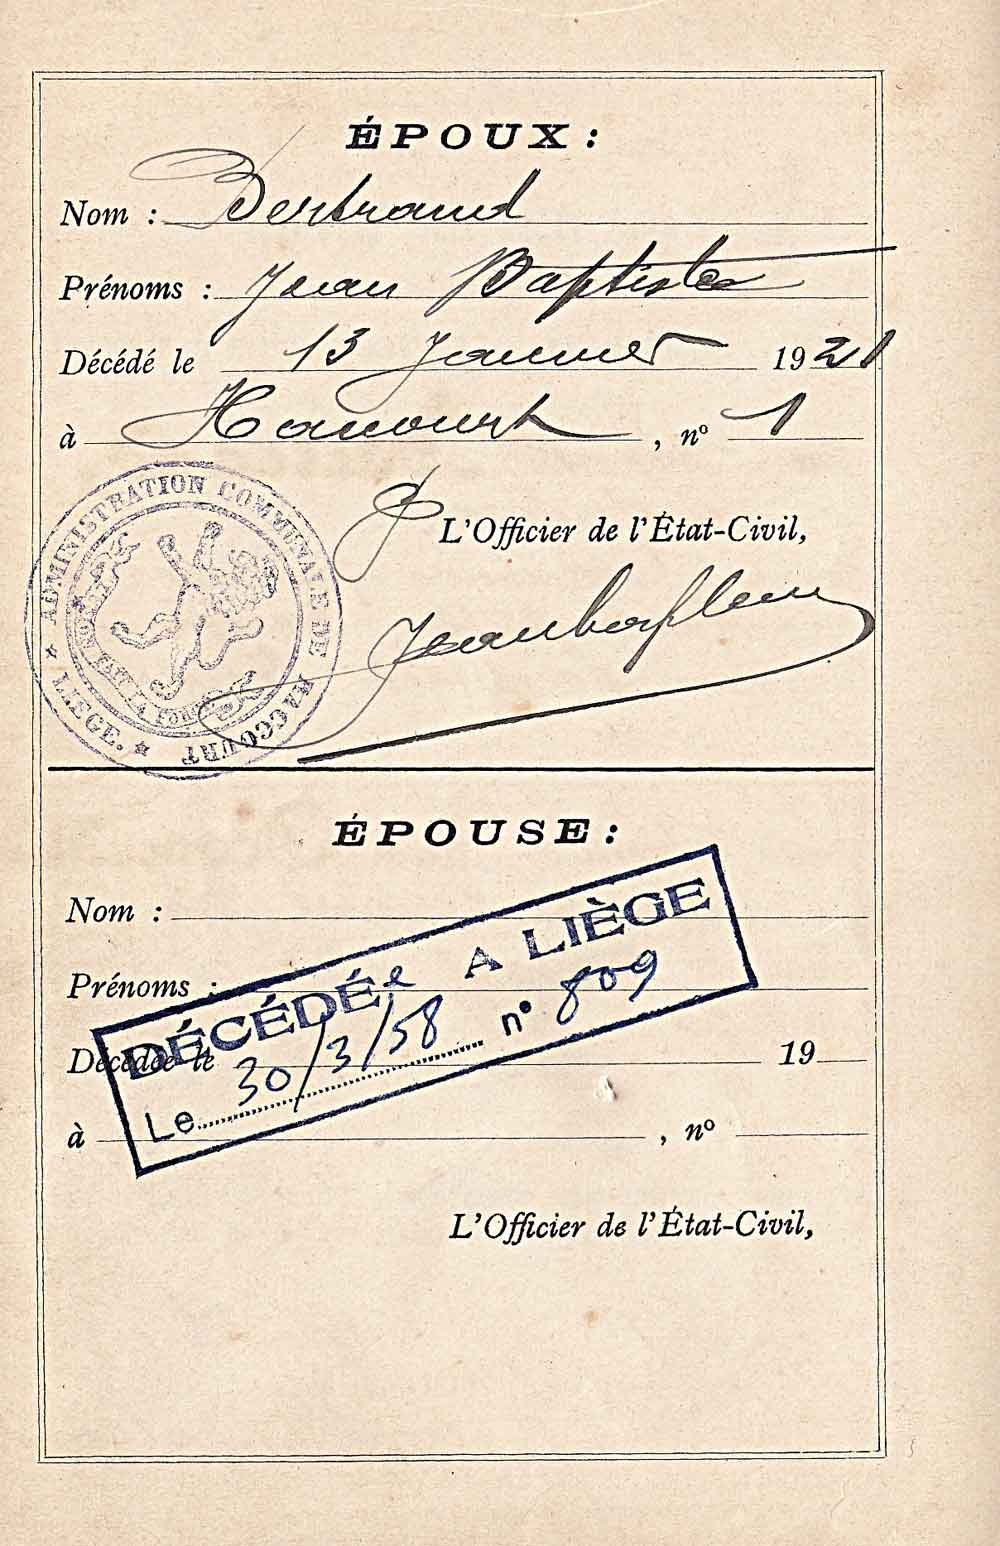 ÉPOUX :
Nom : Bertrand
Prénoms : Jean Baptiste
Décédé le 13 Janvier 1921
à Haccourt , nº 1
ADMINISTRATION COMMUNALE DE HACCOURT
★ LIEGE. ★
L'Officier de l'État-Civil,
ÉPOUSE :
Nom :
Prénoms :
DÉCÉDÉe A LIÈGE
Le 30/3/58 nº 809
Décédée le 19
à , nº
L'Officier de l'État-Civil,